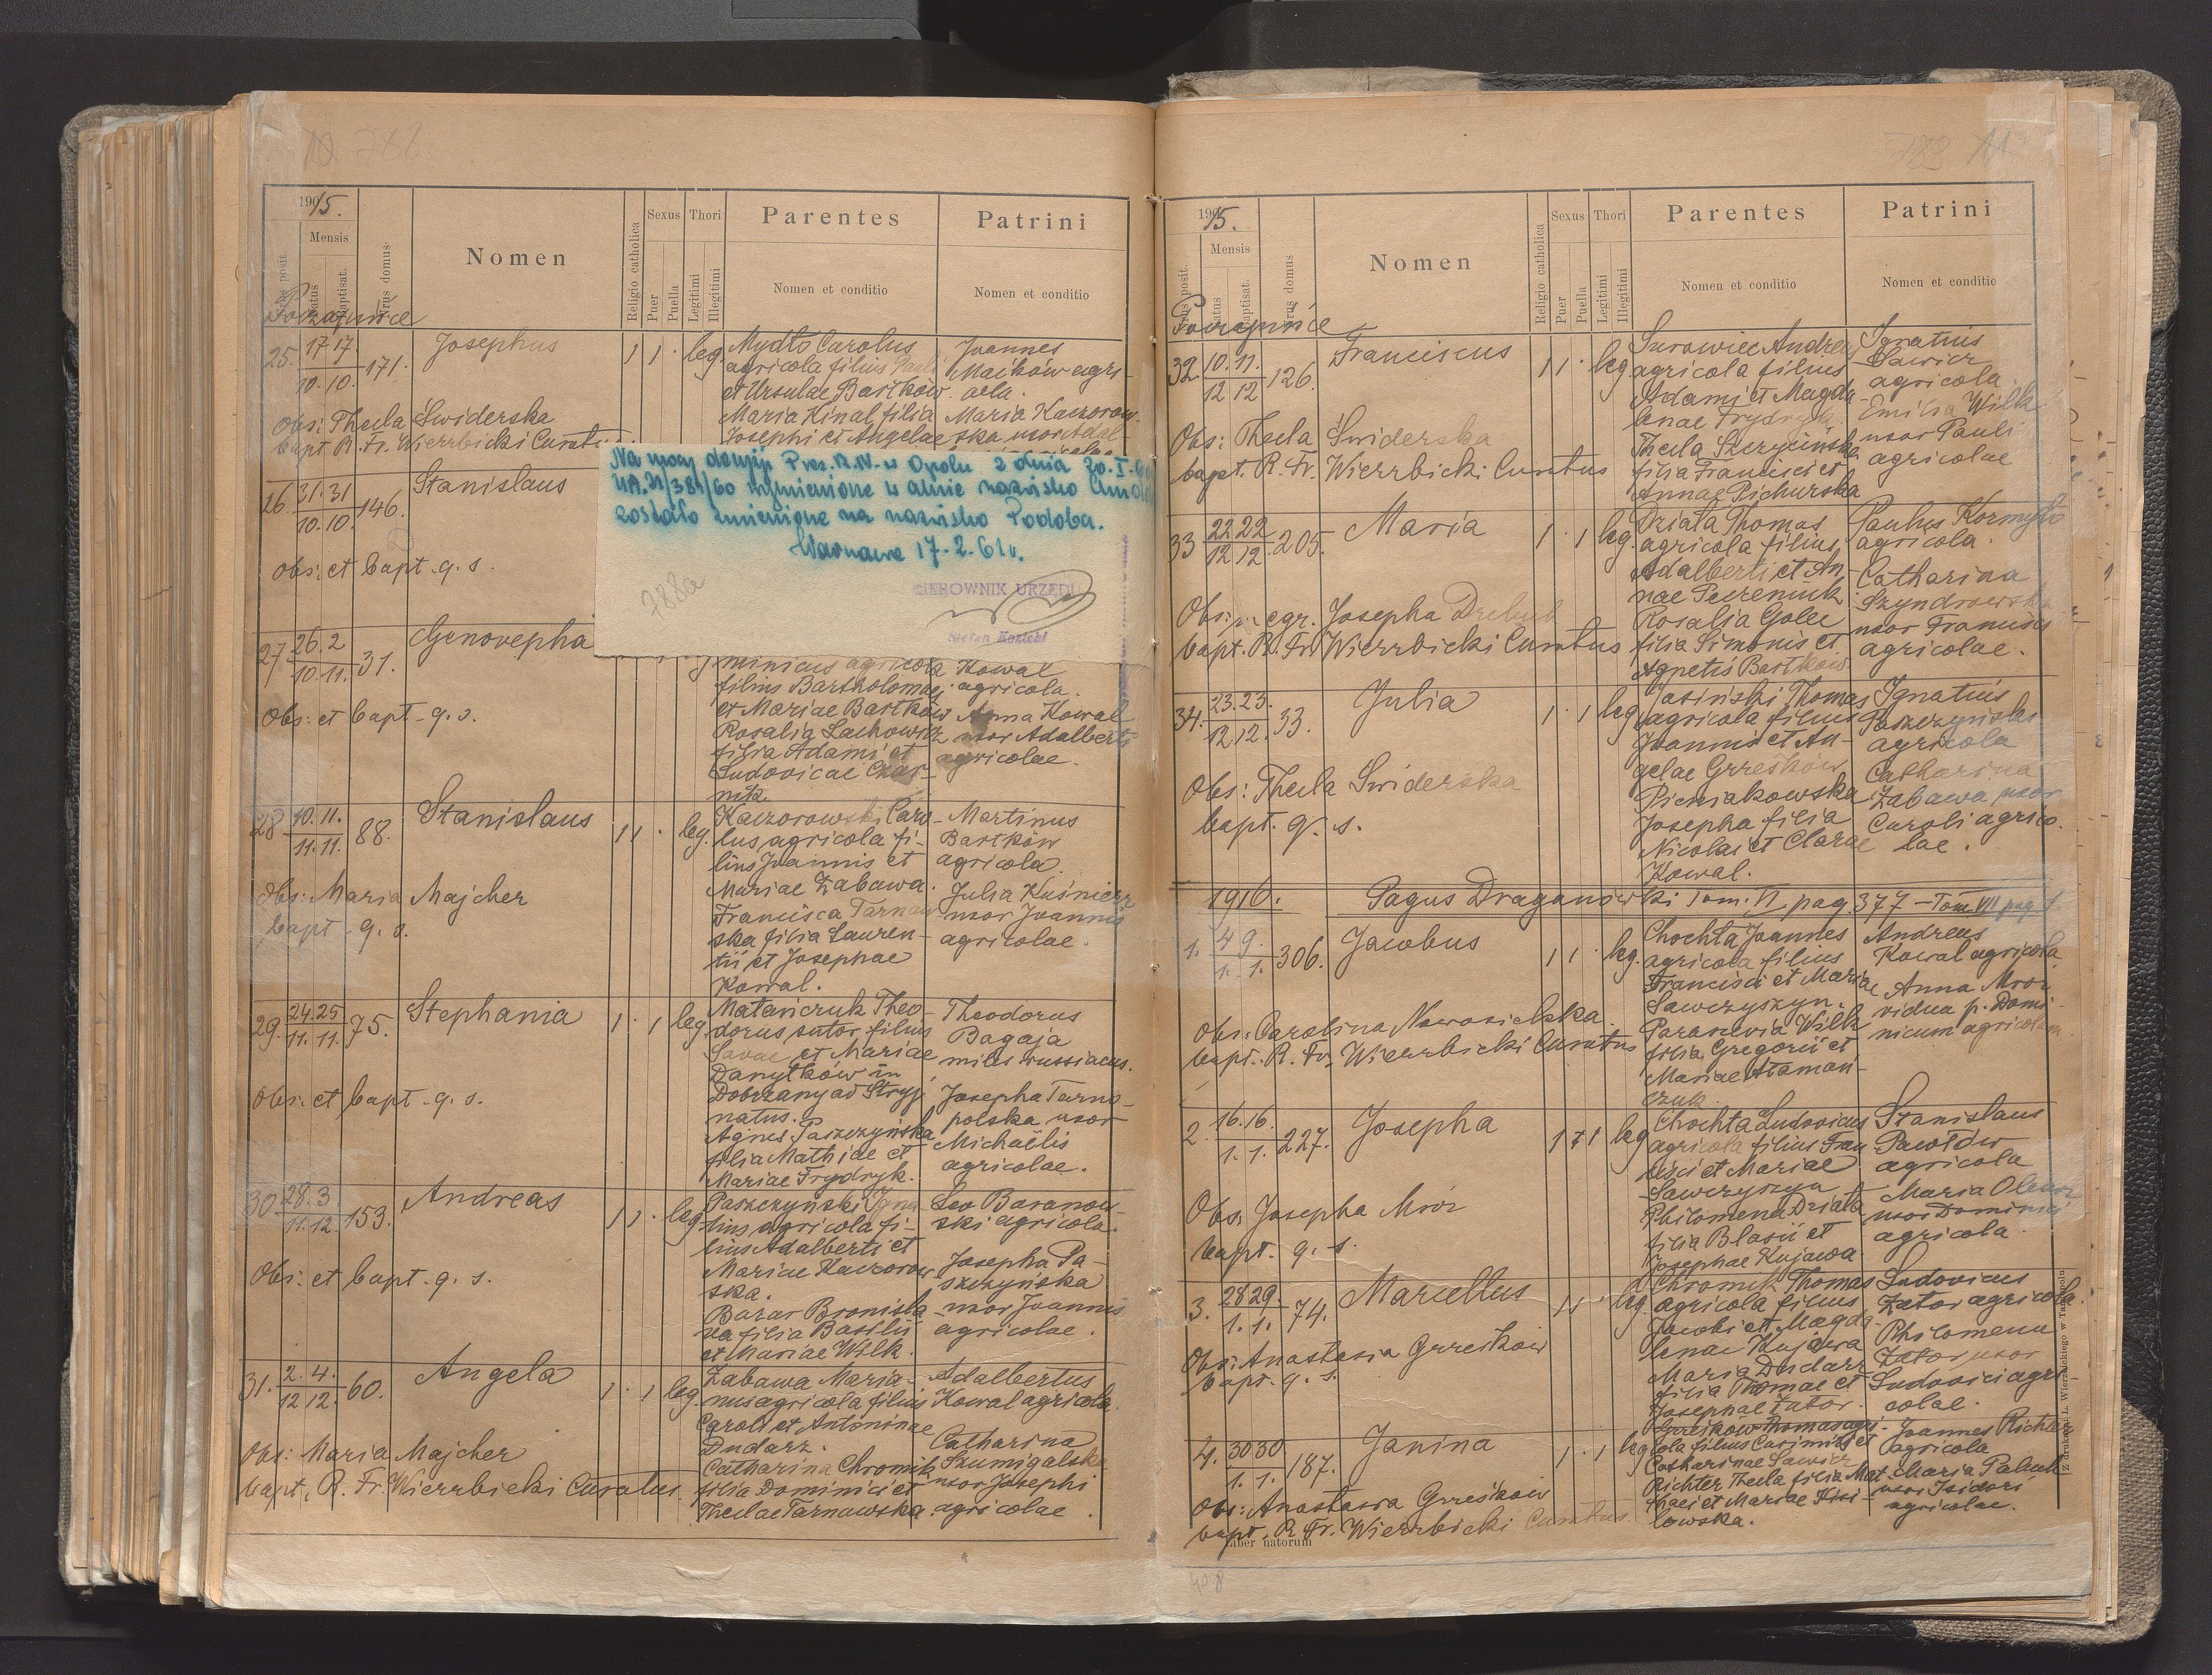 10 782
1915.
Mensis
Nomen
Religio catholica
Sexus
Puer
Puella
Thori
Legitimi
Illegitimi
Parentes
Nomen et conditio
Patrini
Nomen et conditio
25. 17. 17. 10. 10. 171. Josephus 1 1 . leg.
Mydło Carolus
agricola filius Pauli
et Ursulae Bartków.
Maria Kinal filia
Josephi et Angelae
Joannes
Maików agri-
cola.
Maria Kaczorow-
ska uxor Adal-
Obs: Thecla Swiderska
bapt. R. Fr. Wierzbicki Curatus
26. 31. 31 10. 10. 146. Stanislaus
Obs: et bapt. q. s.
Na mocy decyzji Prez. R. N. w Opolu z dnia 20. I.
zostało zmienione na nazwisko Podoba.
Warszawa 17. 2. 61 r.
788a
KIEROWNIK URZĘDU
Stefan Kozicki
27. 26. 2 10. 11. 31. Genovepha
minicus agricola
filius Bartholomaei
et Mariae Bartków
Rosalia Lachowicz
filia Adami et
Ludovicae
Kowal
agricola.
Anna Kowal
uxor Adalberti
agricolae.
Obs: et bapt. q. s.
28 10. 11. 11. 11. 88. Stanislaus 1 1 . leg.
Kaczorowski Caro-
lus agricola fi-
lius Joannis et
Mariae Zabawa.
Francisca Tarnaw-
ska filia Lauren-
tii et Josephae
Kowal.
Martinus
Bartków
agricola.
Julia Kuśnierz
uxor Joannis
agricolae.
Obs: Maria Majcher
bapt. q. s.
29. 24. 25 11. 11. 75. Stephania 1 . 1 leg.
Matańczuk Theo-
dorus sutor filius
Savae et Mariae
Danytków in
Dobrzany ad Stryj
natus.
Agnes Paszczyńska
filia Mathiae et
Mariae Frydryk.
Theodorus
Bagaja
miles russiacus.
Josepha Tarno-
polska uxor
Michaëlis
agricolae.
Obs: et bapt. q. s.
30 28. 3 11. 12. 153. Andreas 1 1 . leg.
Paszczyński Igna-
tius agricola fi-
lius Adalberti et
Mariae Kaczorow-
ska.
Bazar Bronisla-
va filia Basilii
et Mariae Wilk.
Leo Baranow-
ski agricola.
Josepha Pa-
szczyńska
uxor Joannis
agricolae.
Obs: et bapt. q. s.
31. 2. 4. 12. 12. 60. Angela 1 . 1 leg.
Zabawa Maria-
nus agricola filius
Caroli et Antoninae
Dudarz.
Catharina Chromik
filia Dominici et
Theclae Tarnawska.
Adalbertus
Kowal agricola.
Catharina
Szumigalska
uxor Josephi
agricolae.
Obs: Maria Majcher
bapt. R. Fr. Wierzbicki Curatus.
783 11
1915.
Mensis
Nomen
Religio catholica
Sexus
Puer
Puella
Thori
Legitimi
Illegitimi
Parentes
Nomen et conditio
Patrini
Nomen et conditio
32. 10. 11. 12 12 126. Franciscus 1 1 . leg.
Surowiec Andreas
agricola filius
Adami et Magda-
lenae Frydryk
Thecla Szczycińska
filia Francisci et
Annae Pichurska
Ignatius
Sawicz
agricola.
Emilia Wilk
uxor Pauli
agricolae
Obs: Thecla Swiderska
bapt. R. Fr. Wierzbicki Curatus
33 22 22 12 12 205. Maria 1 . 1 leg.
Działa Thomas
agricola filius
Adalberti et An-
nae Seczeniuk
Rosalia Golec
filia Simonis et
Agnetis Bartków
Paulus Kormyło
agricola.
Catharina
Szyndrowska
uxor Francisci
agricolae.
bapt. R. Fr. Wierzbicki Curatus
34. 23. 23. 12. 12. 33. Julia 1 . 1 leg.
Jasiński Thomas
agricola filius
Joannis et An-
gelae Grześków
Pieniakowska
Josepha filia
Nicolai et Clarae
Kowal.
Ignatius
Paszczyński
agricola
Catharina
Zabawa uxor
Caroli agrico-
lae.
Obs: Thecla Swiderska
bapt. q. s.
1916. Pagus Draganówki Tom. VI pag. 377 – Tom. VII pag. 1
1. 4 9. 1. 1. 306. Jacobus 1 1 . leg.
Chochta Joannes
agricola filius
Francisci et Mariae
Sawczyszyn.
Parascevia Wilk
filia Gregorii et
Mariae Ataman-
czuk.
Andreas
Kowal agricola.
Anna Mroz
vidua p. Domi-
nicum agricolam.
Obs: Carolina Nowosielska
bapt. R. Fr. Wierzbicki Curatus
2. 16. 16. 1. 1. 227. Josepha 1 . 1 leg
Chochta Ludovicus
agricola filius Fran-
cisci et Mariae
Sawczyszyn
Philomena Działa
filia Blasii et
Josephae Kujawa.
Stanislaus
Pawłów
agricola
uxor Dominici
agricola.
Obs. Josepha Mróz
bapt. q. s.
3. 28 29. 1. 1. 74. Marcellus 1 1 . leg.
Chromik Thomas
agricola filius
Jacobi et Magda-
lenae Kujawa
Maria Dudarz
filia Thomae et
Josephae Zator.
Ludovicus
Zator agricola.
Philomena
Zator uxor
Ludovici agri-
colae.
Obs: Anastasia Grześków
bapt. q. s.
4. 30 30 1. 1. 187. Janina 1 . 1 leg
Grześków Thomas agri-
cola filius Casimiri et
Catharinae Sawicz
Richter Thecla filia Mat-
thaei et Mariae Kisi-
lowska.
Joannes Richter
agricola
Maria Paluch
uxor Isidori
agricolae.
Obs: Anastasia Grześków
bapt. R. Fr. Wierzbicki Curatus.
Liber natorum